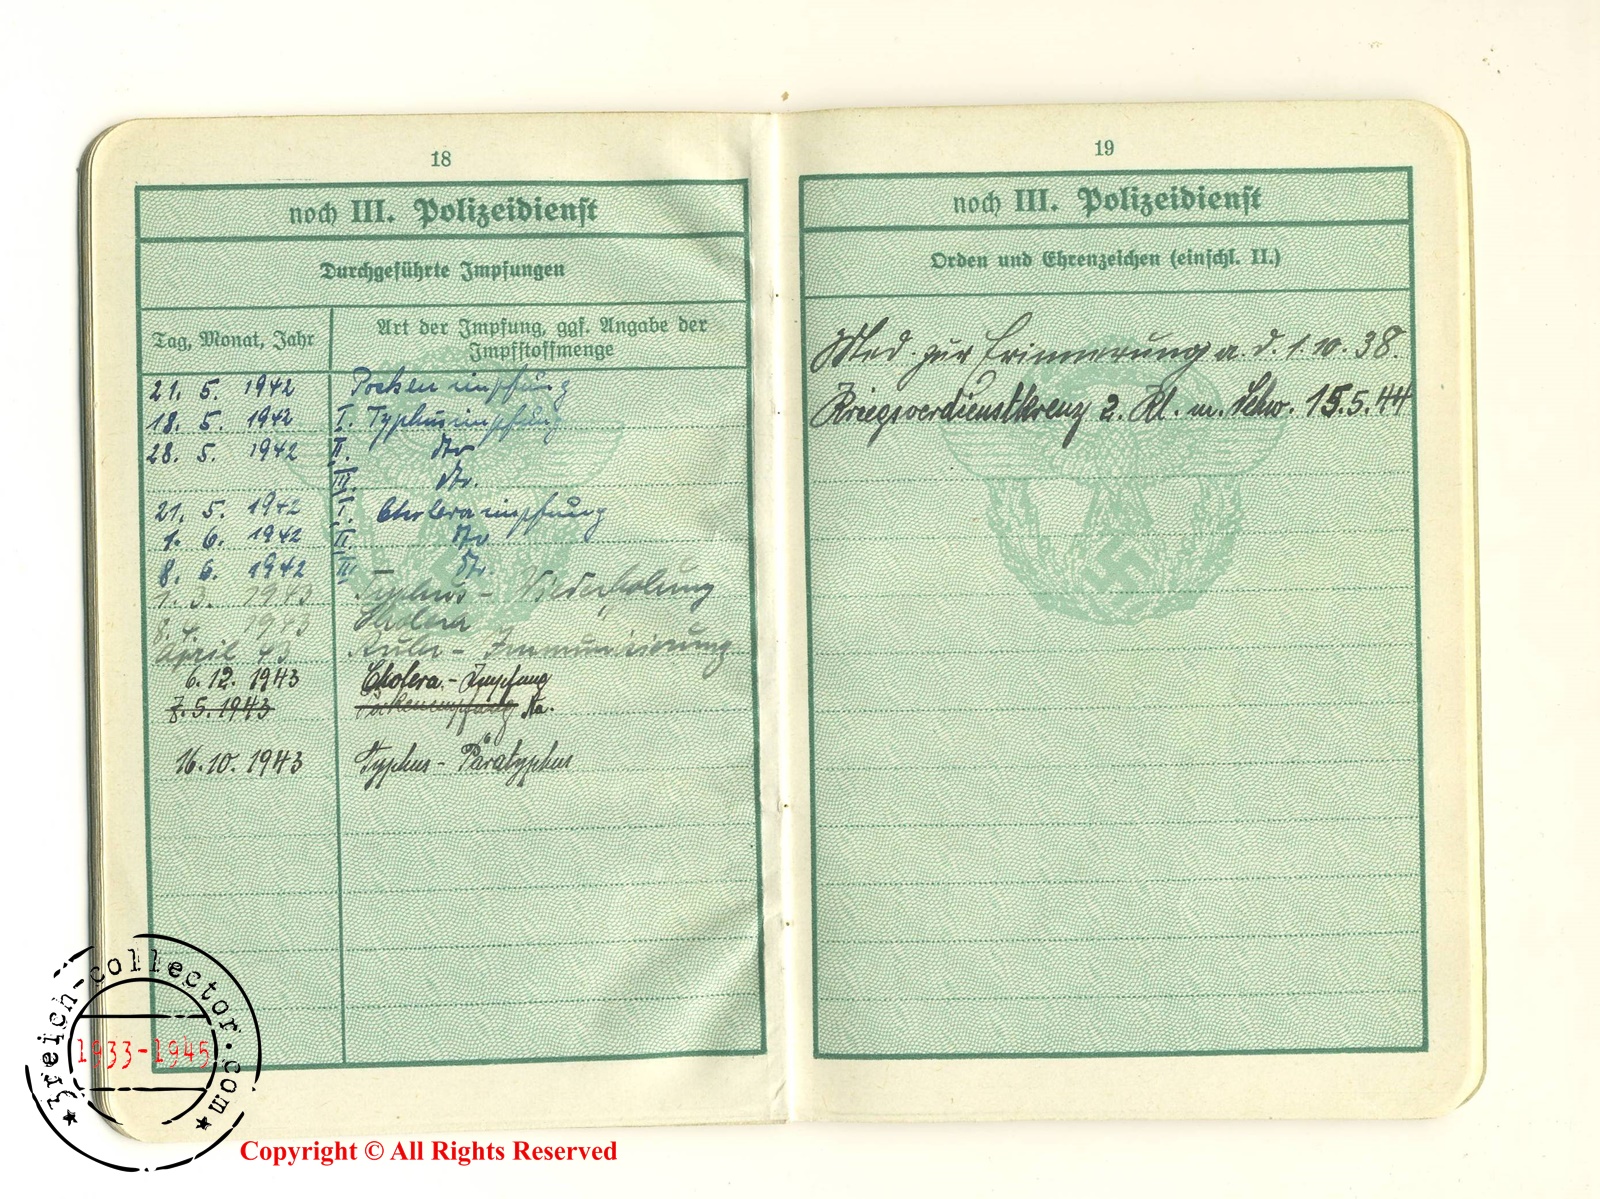 18
noch III. Polizeidienst
Durchgeführte Impfungen
Tag, Monat, Jahr
Art der Impfung, ggf. Angabe der
Impfstoffmenge
21. 5. 1942 Pockenimpfung
18. 5. 1942 I. Typhusimpfung
28. 5. 1942 II. dto
III. dto.
21. 5. 1942 I. Choleraimpfung
1. 6. 1942 II. dto
8. 6. 1942 III. – dto.
1. 3. 1943 Typhus - Wiederholung
8. 4. 1943 Cholera
April 43 Ruhr - Immunisierung
6. 12. 1943 Cholera - Impfung
7. 5. 1943 Pockenimpfung Na.
16. 10. 1943 Typhus - Paratyphus
19
noch III. Polizeidienst
Orden und Ehrenzeichen (einschl. II.)
Med. zur Erinnerung a. d. 1. 10. 38.
Kriegsverdienstkreuz 2. Kl. m. Schw. 15.5.44
3reich-collector.com
1933-1945
Copyright © All Rights Reserved